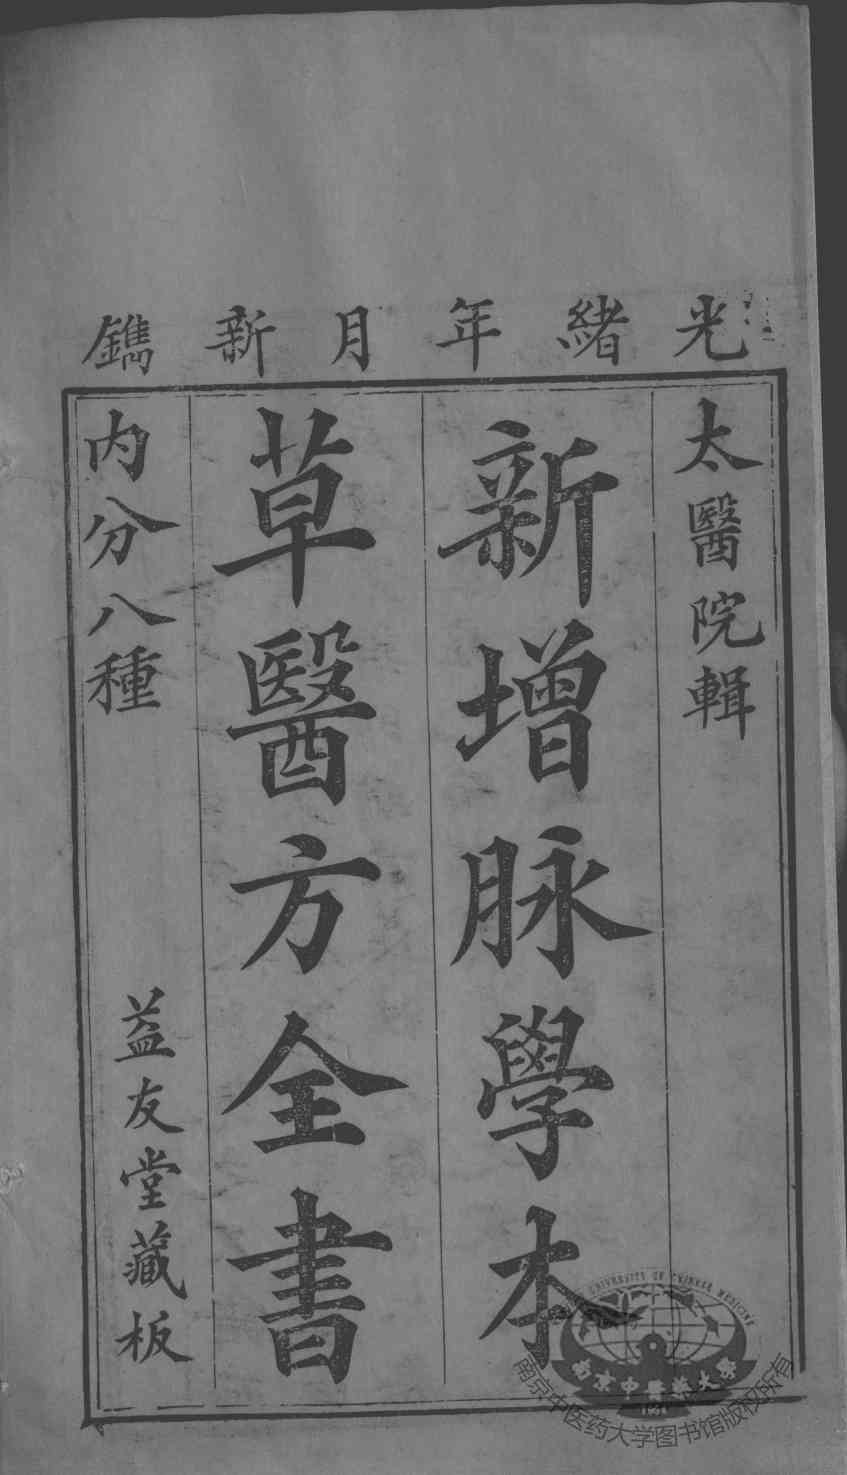 光緒年月新鐫
太醫院輯
新增脉學本
草醫方全書
内分八種
益友堂藏板
UNIVERSITY OF CHINESE MEDICINE
南京中醫藥大學
1954
南京中医药大学图书馆版权所有